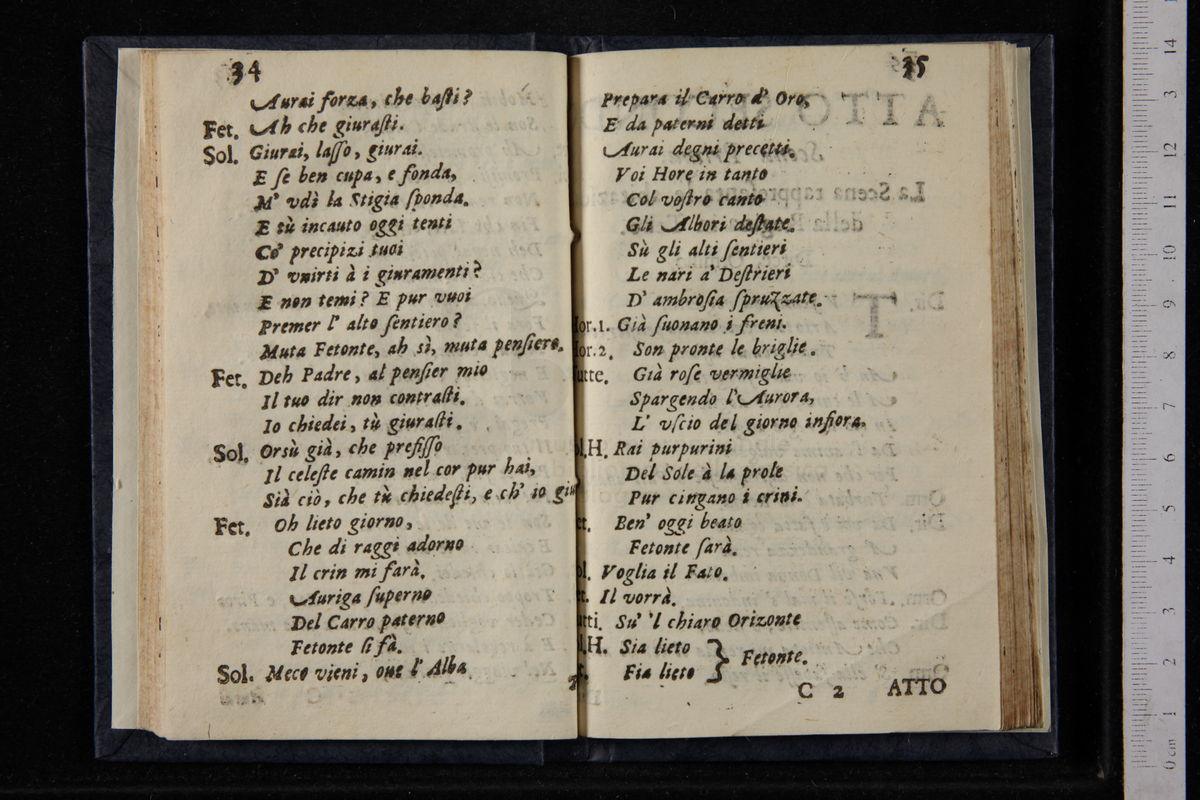 34
Aurai forza, che baſti?
Fet. Ah che giuraſti.
Sol. Giurai, laſſo, giurai.
E ſe ben cupa, e fonda,
M' vdì la Stigia ſponda.
E tù incauto oggi tenti
Co' precipizi tuoi
D' vnirti à i giuramenti?
E non temi? E pur vuoi
Premer l' alto ſentiero?
Muta Fetonte, ah sì, muta penſiero.
Fet. Deh Padre, al penſier mio
Il tuo dir non contraſti.
Io chiedei, tù giuraſti.
Sol. Orsù già, che prefiſſo
Il celeſte camin nel cor pur hai,
Sià ciò, che tù chiedeſti, e ch' io giu
Fet. Oh lieto giorno,
Che di raggi adorno
Il crin mi farà.
Auriga ſuperno
Del Carro paterno
Fetonte ſi fà.
Sol. Meco vieni, oue l' Alba
35
Prepara il Carro d' Oro,
E da paterni detti
Aurai degni precetti.
Voi Hore in tanto
Col voſtro canto
Gli Albori deſtate.
Sù gli alti ſentieri
Le nari a' Deſtrieri
D' ambroſia ſpruzzate.
Hor.1. Già ſuonano i freni.
Hor.2. Son pronte le briglie.
utte. Già roſe vermiglie
Spargendo l' Aurora,
L' vſcio del giorno infiora.
l.H. Rai purpurini
Del Sole à la prole
Pur cingano i crini.
et. Ben' oggi beato
Fetonte ſarà.
ol. Voglia il Fato.
et. Il vorrà.
utti. Su' 'l chiaro Orizonte
l.H. Sia lieto } Fetonte.
Fia lieto
C 2 ATTO